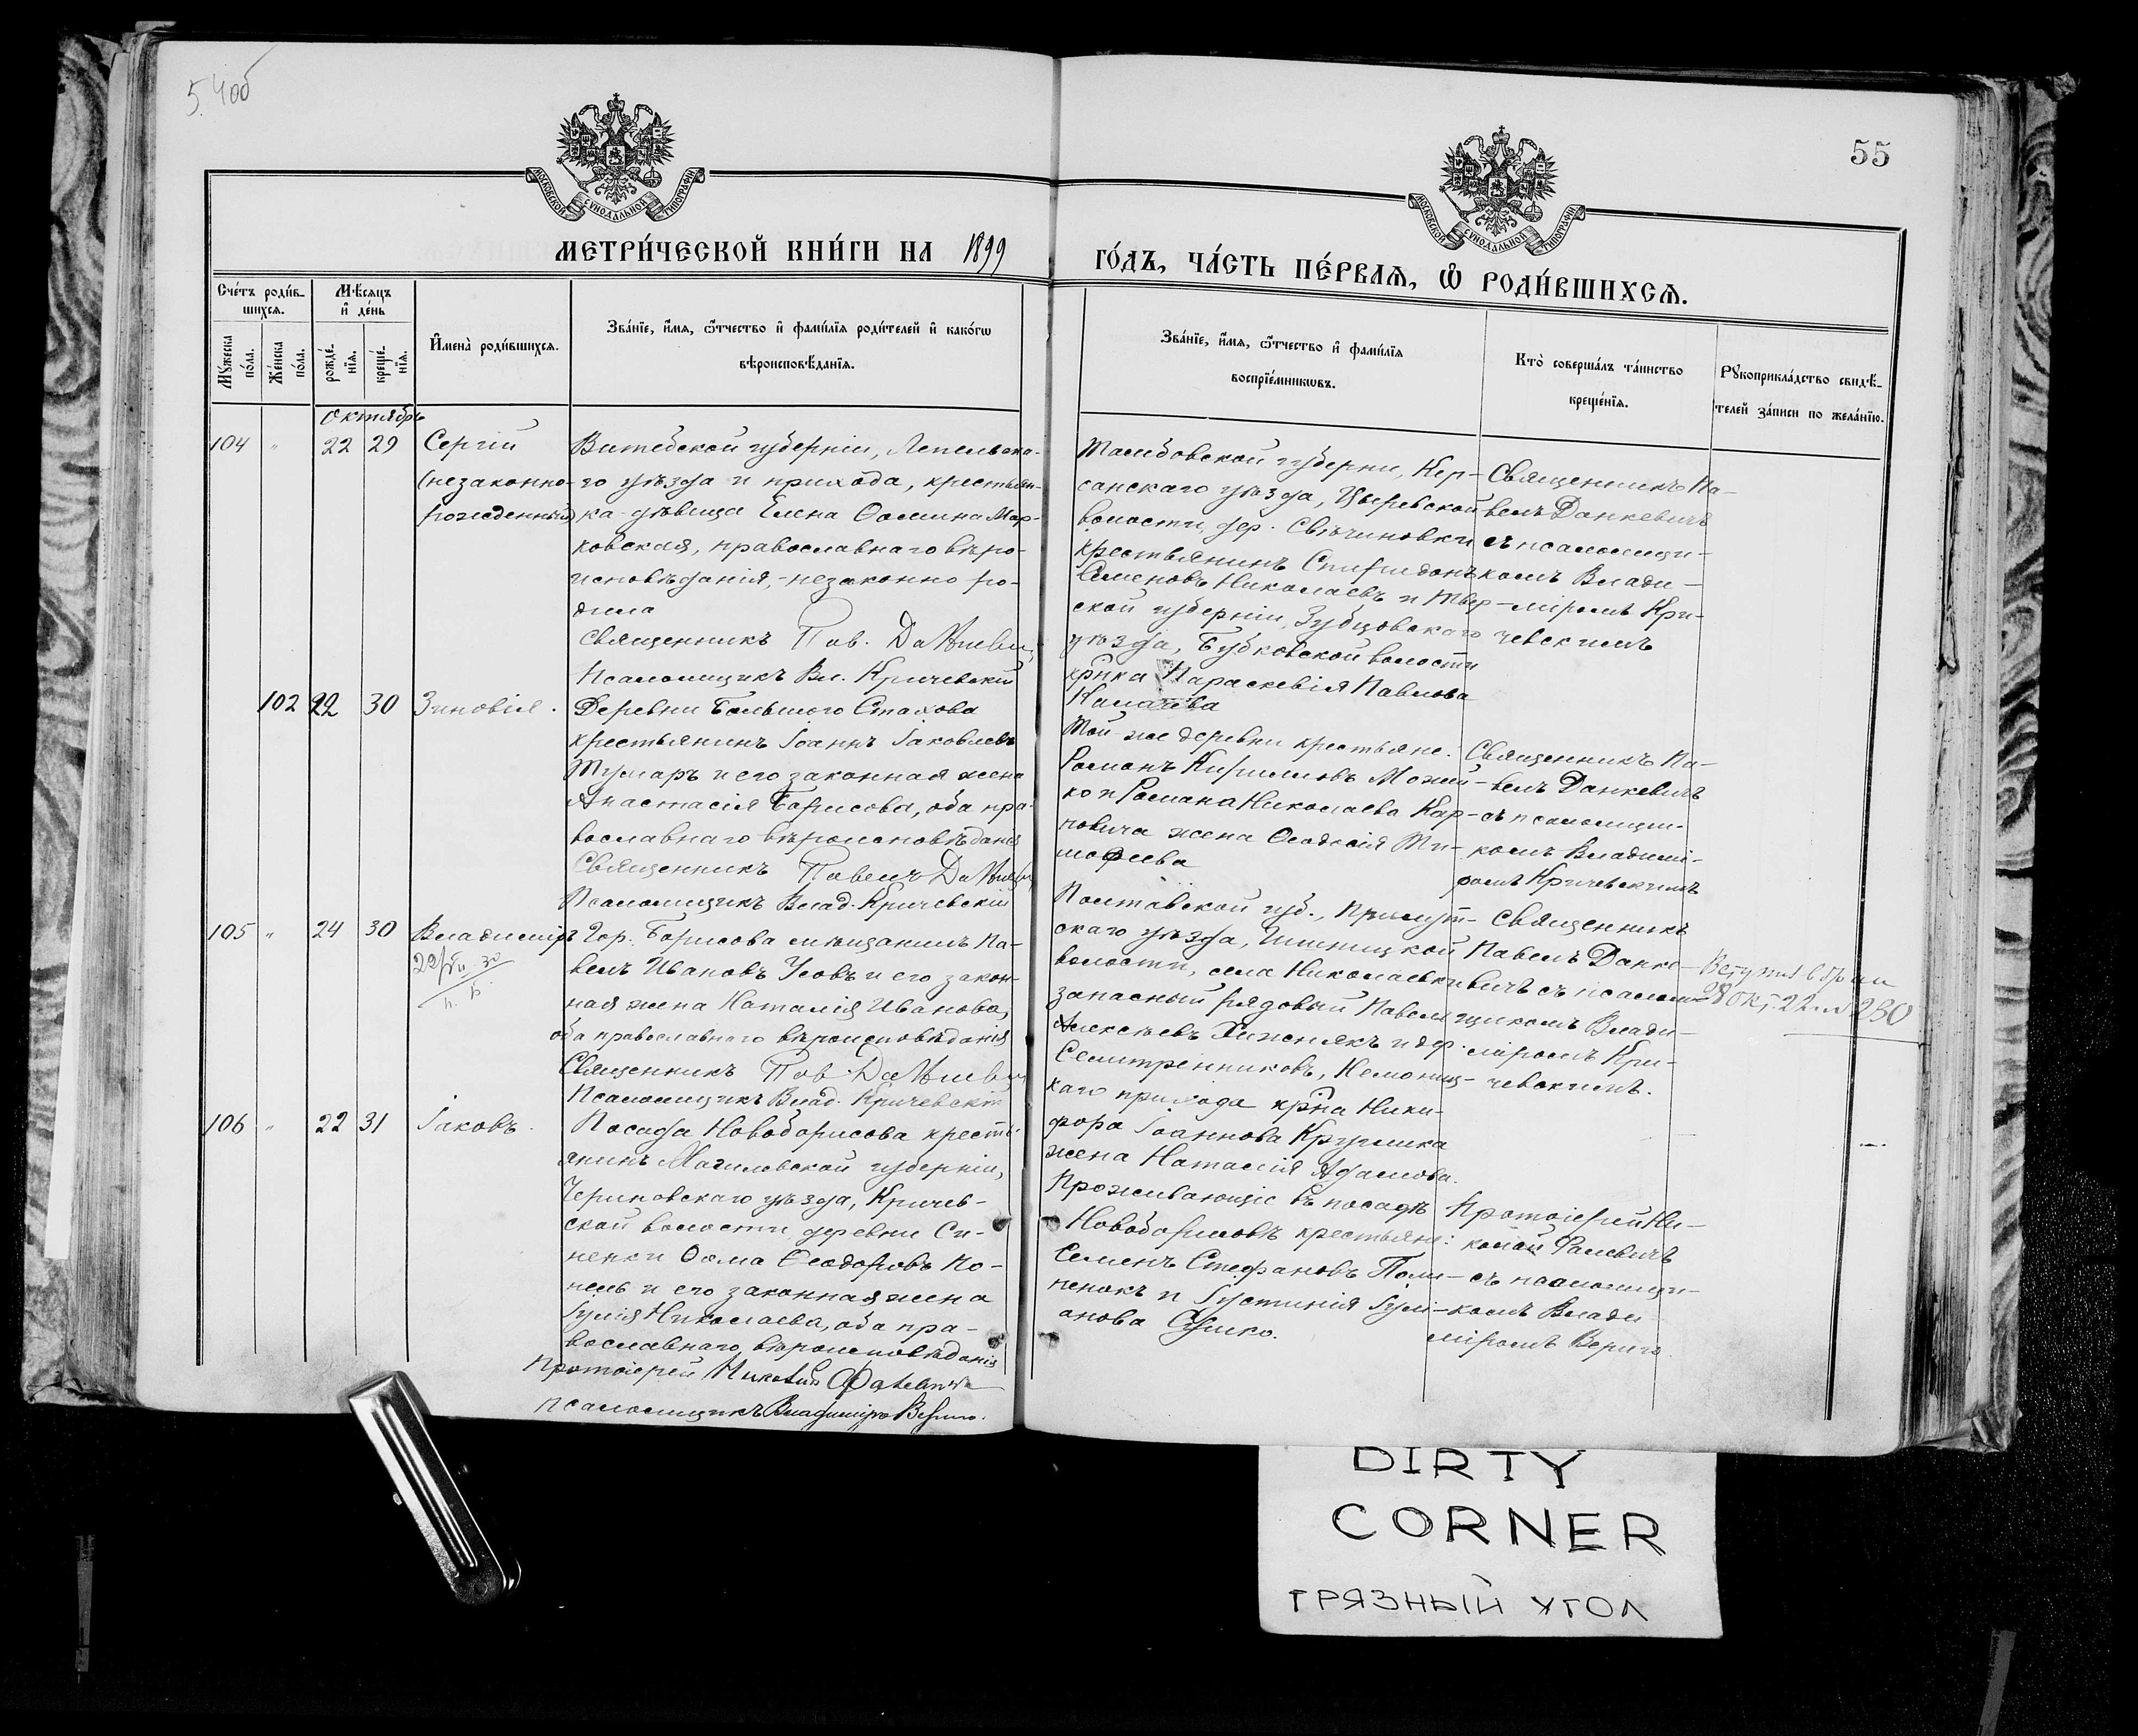 54об
55
МОСКОВСКОЙ СѴНОДАЛЬНОЙ ТИПОГРАФІИ
МОСКОВСКОЙ СѴНОДАЛЬНОЙ ТИПОГРАФІИ
МЕТРИ́ЧЕСКОЙ КНИ́ГИ НА 1899
ГО́ДЪ, ЧА́СТЬ ПЕ́РВАѦ, Ѽ РОДИ́ВШИХСѦ.
Сче́тъ роди́в-
шихсѧ.
Мѣ́сѧцъ
и҆ де́нь
Мꙋ́жеска
по́ла.
Же́нска
по́ла.
рожде́-
нїѧ.
креще́-
нїѧ.
И҆мена̀ роди́вшихсѧ.
Зва́нїе, и҆́мѧ, ѻ҆́тчество и҆ фами́лїѧ роди́телей и҆ како́гѡ
вѣроисповѣ́данїѧ.
Зва́нїе, и҆́мѧ, ѻ҆́тчество и҆ фами́лїѧ
воспрїе́мникѡвъ.
Кто̀ соверша́лъ та́инство
креще́нїѧ.
Рꙋкоприкла́дство свидѣ́-
телей за́писи по жела́нїю.
октябрь
104 " 22 29 Сергій
(незаконно-
рожденный)
Витебской губерніи, Лепельска-
го уѣзда и прихода, крестьян-
ка-дѣвица Елена Ѳомина Мар-
ковская, православнаго вѣро-
исповѣданія,-незаконно ро-
дила
Священникъ Пав. Данкевич
Псаломщикъ Вл. Кричевскій
Тамбовской губерніи, Кир-
санскаго уѣзда,
волости, дер. Свѣчиновки
крестьянинъ Спиридонъ
Семеновъ Николаевъ и Твер-
ской губерніи, Зубцовскаго
уѣзда, Бубковской волости
кр-нка Параскевія Павлова
Священникъ Па-
велъ Данкевичъ
съ псаломщи-
комъ Влади-
міромъ Кри-
чевскимъ
102 22 30 Зиновія.
Деревни Большого Стахова
крестьянинъ Іоаннъ Іаковлевъ
и его законная жена
Анастасія Борисова, оба пра-
вославнаго вѣроисповѣданія
Священникъ Павелъ Данкевич
Псаломщикъ Влад. Кричевскій
Той-же деревни крестьяне:
Романъ Кирилловъ Можей-
ко и Романа Николаева Кар-
повича жена Ѳеодосія Ти-
моѳеева
Священникъ Па-
велъ Данкевичъ
съ псаломщи-
комъ Владимі-
ромъ Кричевскимъ
105 " 24 30 Владиміръ
Гор. Борисова мѣщанинъ Па-
велъ Ивановъ Усовъ и его закон-
ная жена Наталія Иванова,
оба православнаго вѣроисповѣданія
Священникъ Пав. Данкевич
Псаломщикъ Влад. Кричевскій
Полтавской губ., Прилут-
скаго уѣзда,
волости, села Николаевки
запасный рядовый Павелъ
Алексѣевъ Хижнякъ и дер.
Селитренниковъ, Кемониц-
каго прихода кр-на Ники-
фора Іоаннова Кругліка
жена Наталія Адамова.
Священникъ
Павелъ Данке-
вичъ съ псалом-
щикомъ Влади-
міромъ Кри-
чевскимъ.
Вступил в брак
28 окт. 22 № 230
106 " 22 31 Іаковъ.
Посада Новоборисова кресть-
янинъ Могилевской губерніи,
Чериковскаго уѣзда, Кричев-
ской волости деревни Си-
ненки Ѳома Ѳеодоровъ По-
и его законная жена
Іулія Николаева, оба пра-
вославнаго вѣроисповѣданія
Протоіерей Николай
псаломщикъ Владиміръ Вериго.
Проживающіе въ посадѣ
Новоборисовѣ крестьяне:
Семенъ Стефановъ
и Іустинія Іулі-
анова
Протоіерей Ни-
колай
съ псаломщи-
комъ Влади-
міромъ Вериго.
DIRTY
CORNER
ГРЯЗНЫЙ УГОЛ